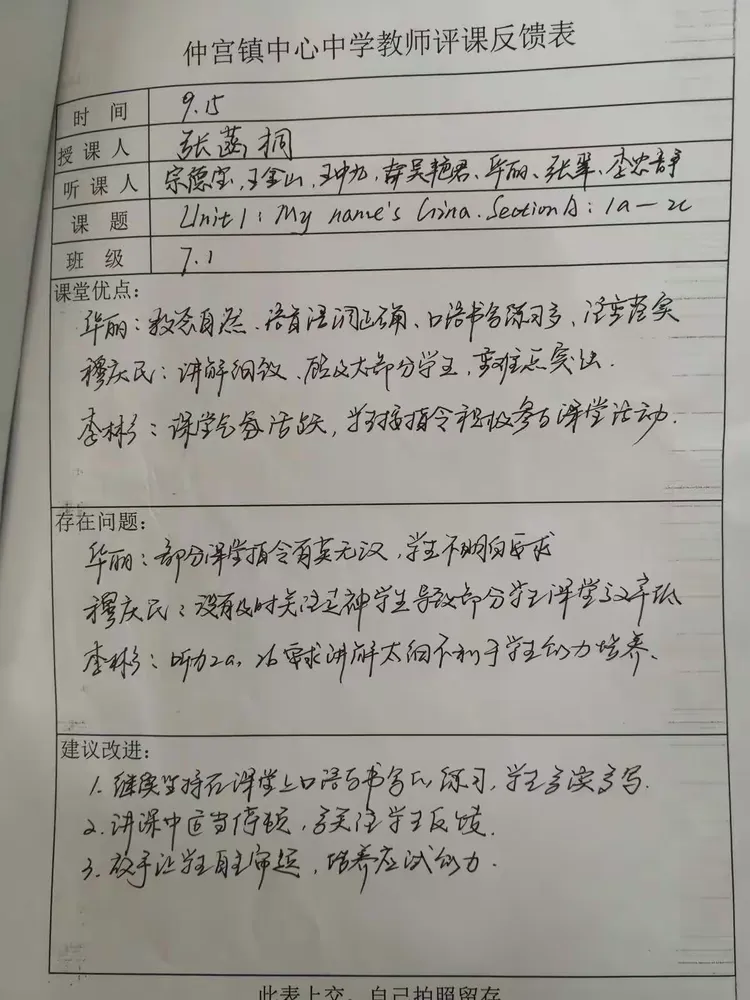 仲宫镇中心中学教师评课反馈表
时间 9.15
授课人 张菡桐
听课人 宗德宝、王金山、王中九、吴艳君、华丽、张翠、李忠静
课题 Unit 1: My name's Gina. Section A: 1a—2c
班级 7.1
课堂优点:
华丽:教态自然、语音语调正确、口语书写练习多、注重落实
穆庆民:讲解细致、照顾大部分学生,重难点突出.
李彬:课堂气氛活跃,学生按指令积极参与课堂活动.
存在问题:
华丽:部分课堂指令有英无汉,学生不明白要求
穆庆民:没有及时关注走神学生导致部分学生课堂效率低
李彬:听力2a, 2b要求讲解太细不利于学生能力培养、
建议改进:
1. 继续坚持在课堂上口语与书写的练习,学生多读多写.
2. 讲课中适当停顿,多关注学生反馈.
3. 放手让学生自主审题,培养应试能力.
此表上交,自己拍照留存